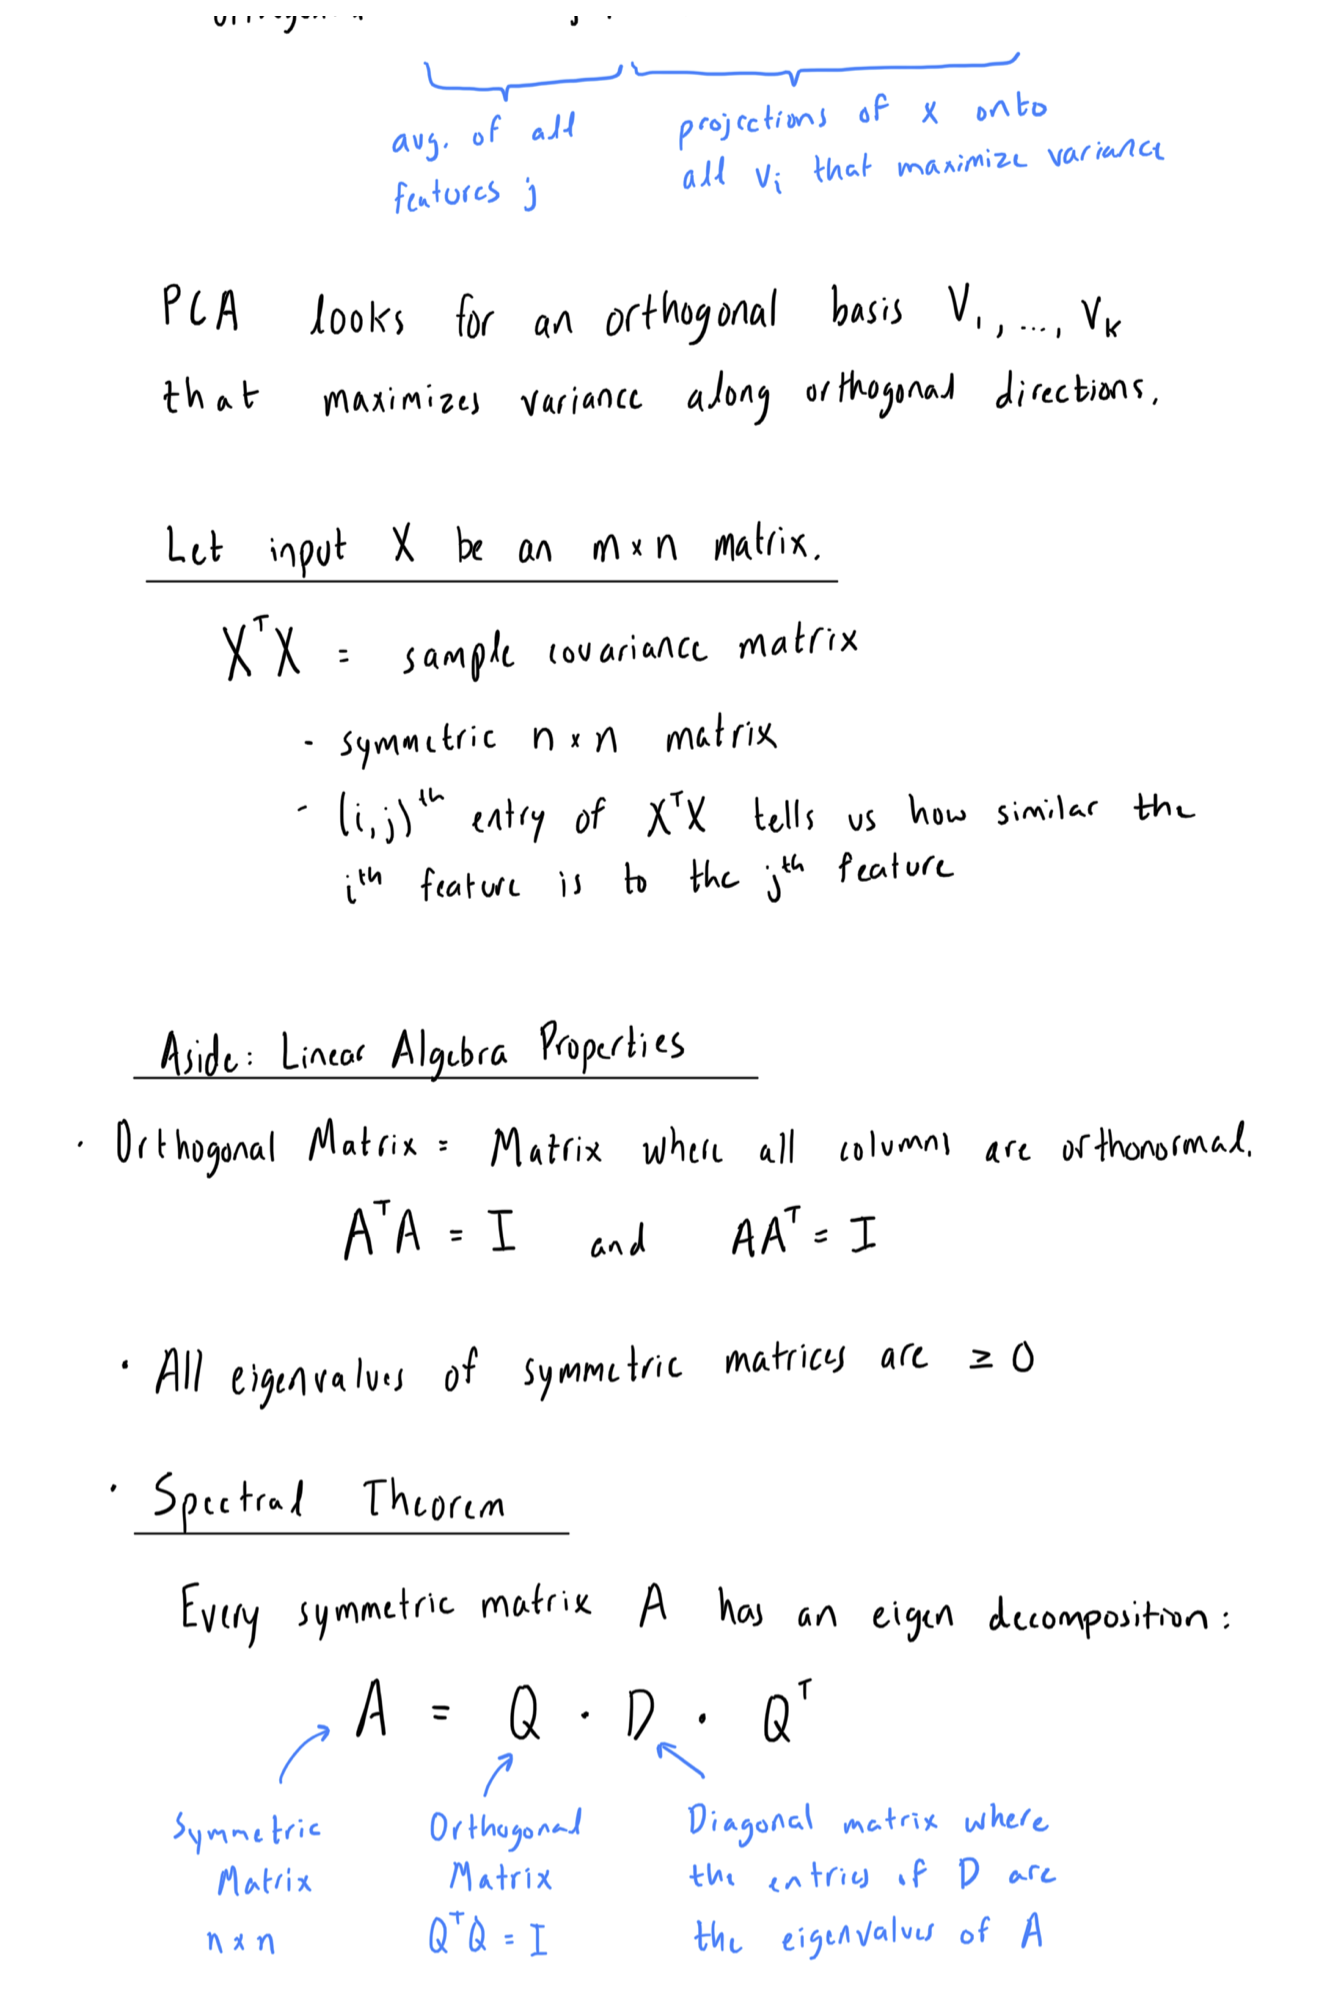 avg. of all
features j
projections of x onto
all vᵢ that maximize variance
PCA looks for an orthogonal basis V₁, ..., Vₖ
that maximizes variance along orthogonal directions.
Let input X be an m × n matrix.
XᵀX = sample covariance matrix
- symmetric n × n matrix
- (i,j)ᵗʰ entry of XᵀX tells us how similar the
iᵗʰ feature is to the jᵗʰ feature
Aside: Linear Algebra Properties
· Orthogonal Matrix = Matrix where all columns are orthonormal.
AᵀA = I and AAᵀ = I
· All eigenvalues of symmetric matrices are ≥ 0
· Spectral Theorem
Every symmetric matrix A has an eigen decomposition:
A = Q · D · Qᵀ
Symmetric
Matrix
n × n
Orthogonal
Matrix
QᵀQ = I
Diagonal matrix where
the entries of D are
the eigenvalues of A